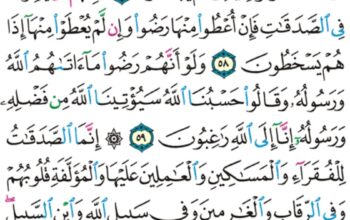 فِي الصَّدَقَٰتِ فَإِنْ أُعْطُوا۟ مِنْهَا رَضُوا۟ وَإِن لَّمْ يُعْطَوْا۟ مِنْهَآ إِذَا
هُمْ يَسْخَطُونَ ٥٨ وَلَوْ أَنَّهُمْ رَضُوا۟ مَآ ءَاتَىٰهُمُ ٱللَّهُ
وَرَسُولُهُۥ وَقَالُوا۟ حَسْبُنَا ٱللَّهُ سَيُؤْتِينَا ٱللَّهُ مِن فَضْلِهِۦ
وَرَسُولُهُۥٓ إِنَّآ إِلَى ٱللَّهِ رَٰغِبُونَ ٥٩ ۞ إِنَّمَا ٱلصَّدَقَٰتُ
لِلْفُقَرَآءِ وَٱلْمَسَٰكِينِ وَٱلْعَٰمِلِينَ عَلَيْهَا وَٱلْمُؤَلَّفَةِ قُلُوبُهُمْ
وَفِي ٱلرِّقَابِ وَٱلْغَٰرِمِينَ وَفِي سَبِيلِ ٱللَّهِ وَٱبْنِ ٱلسَّبِيلِ